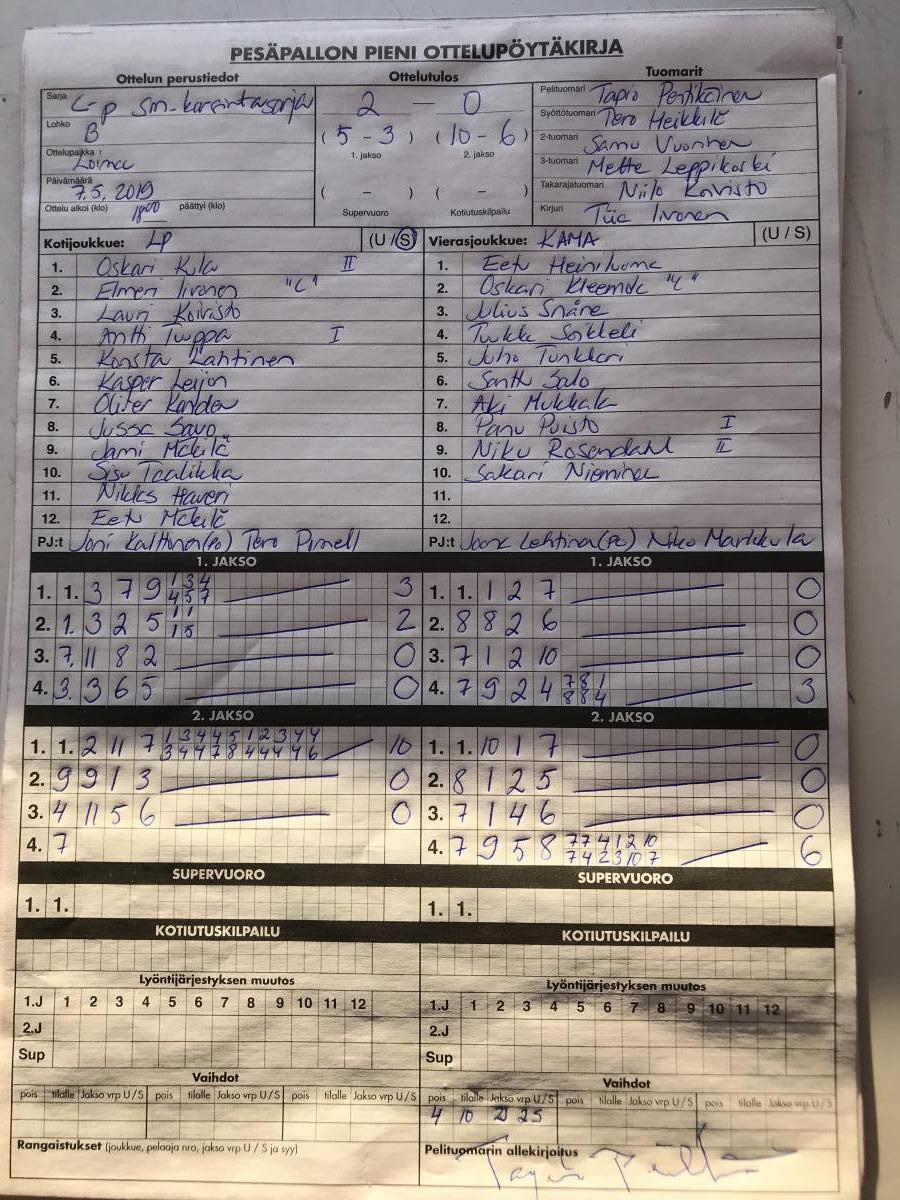 PESÄPALLON PIENI OTTELUPÖYTÄKIRJA
Ottelun perustiedot
Sarja
Lohko B
Ottelupaikka Loimaa
Päivämäärä 7.5.2019
Ottelu alkoi (klo) 18:00 päättyi (klo)
Ottelutulos
2 — 0
( 5 - 3 ) ( 10 - 6 )
1. jakso 2. jakso
( - ) ( - )
Supervuoro Kotiutuskilpailu
Tuomarit
Pelituomari Tapio Penkkinen
Syöttötuomari Tero Heikkilä
2-tuomari Samu Vuorinen
3-tuomari Mette Leppikoski
Takarajatuomari Niilo Koivisto
Kirjuri Tiia Iivonen
Kotijoukkue: LP (U / S)
1. Oskari Kyla II
2. Elmeri Iivonen "C"
3. Lauri Koivisto
4. Antti Tuppa I
5. Konsta Lahtinen
6. Kasper Leijon
7. Oliver
8. Jusse Savo
9. Jami Mäkilä
10. Sisu Taalikka
11. Niklas Haveri
12. Eetu Mäkilä
PJ:t Joni Kaltionen(PO) Tero Pirnell
Vierasjoukkue: KAMA (U / S)
1. Eetu Heiniluoma
2. Oskari Kleemola "C"
3. Julius Snåre
4. Tuukka Soikkeli
5. Juho Tunkkari
6. Santtu Salo
7. Aki Mukkala
8. Panu Puisto I
9. Niku Rosendahl II
10. Sakari Nieminen
11.
12.
PJ:t Joona Lehtinen(PO) Niko Markkula
1. JAKSO
1. 1. 3 7 9 1 3 4 3
4 5 7
2. 1. 3 2 5 1 1 2
1 5
3. 7. 11 8 2 0
4. 3. 3 6 5 0
1. JAKSO
1. 1. 1 2 7 0
2. 8 8 2 6 0
3. 7 1 2 10 0
4. 7 9 2 4 7 8 1 3
8 8 4
2. JAKSO
1. 1. 2 11 7 1 3 4 4 5 1 2 3 4 4 10
3 4 4 7 8 4 4 4 4 6
2. 9 9 1 3 0
3. 4 11 5 6 0
4. 7
2. JAKSO
1. 1. 10 1 7 0
2. 8 1 2 5 0
3. 7 1 4 6 0
4. 7 9 5 8 7 7 4 1 2 10 6
7 4 2 3 10 7
SUPERVUORO
1. 1.
SUPERVUORO
1. 1.
KOTIUTUSKILPAILU
KOTIUTUSKILPAILU
Lyöntijärjestyksen muutos
1.J 1 2 3 4 5 6 7 8 9 10 11 12
2.J
Sup
Lyöntijärjestyksen muutos
1.J 1 2 3 4 5 6 7 8 9 10 11 12
2.J
Sup
Vaihdot
pois tilalle Jakso vrp U / S pois tilalle Jakso vrp U / S pois tilalle Jakso vrp U / S
Vaihdot
pois tilalle Jakso vrp U / S pois tilalle Jakso vrp U / S pois tilalle Jakso vrp U / S
4 10 2S
Rangaistukset (joukkue, pelaaja nro, jakso vrp U / S ja syy)
Pelituomarin allekirjoitus